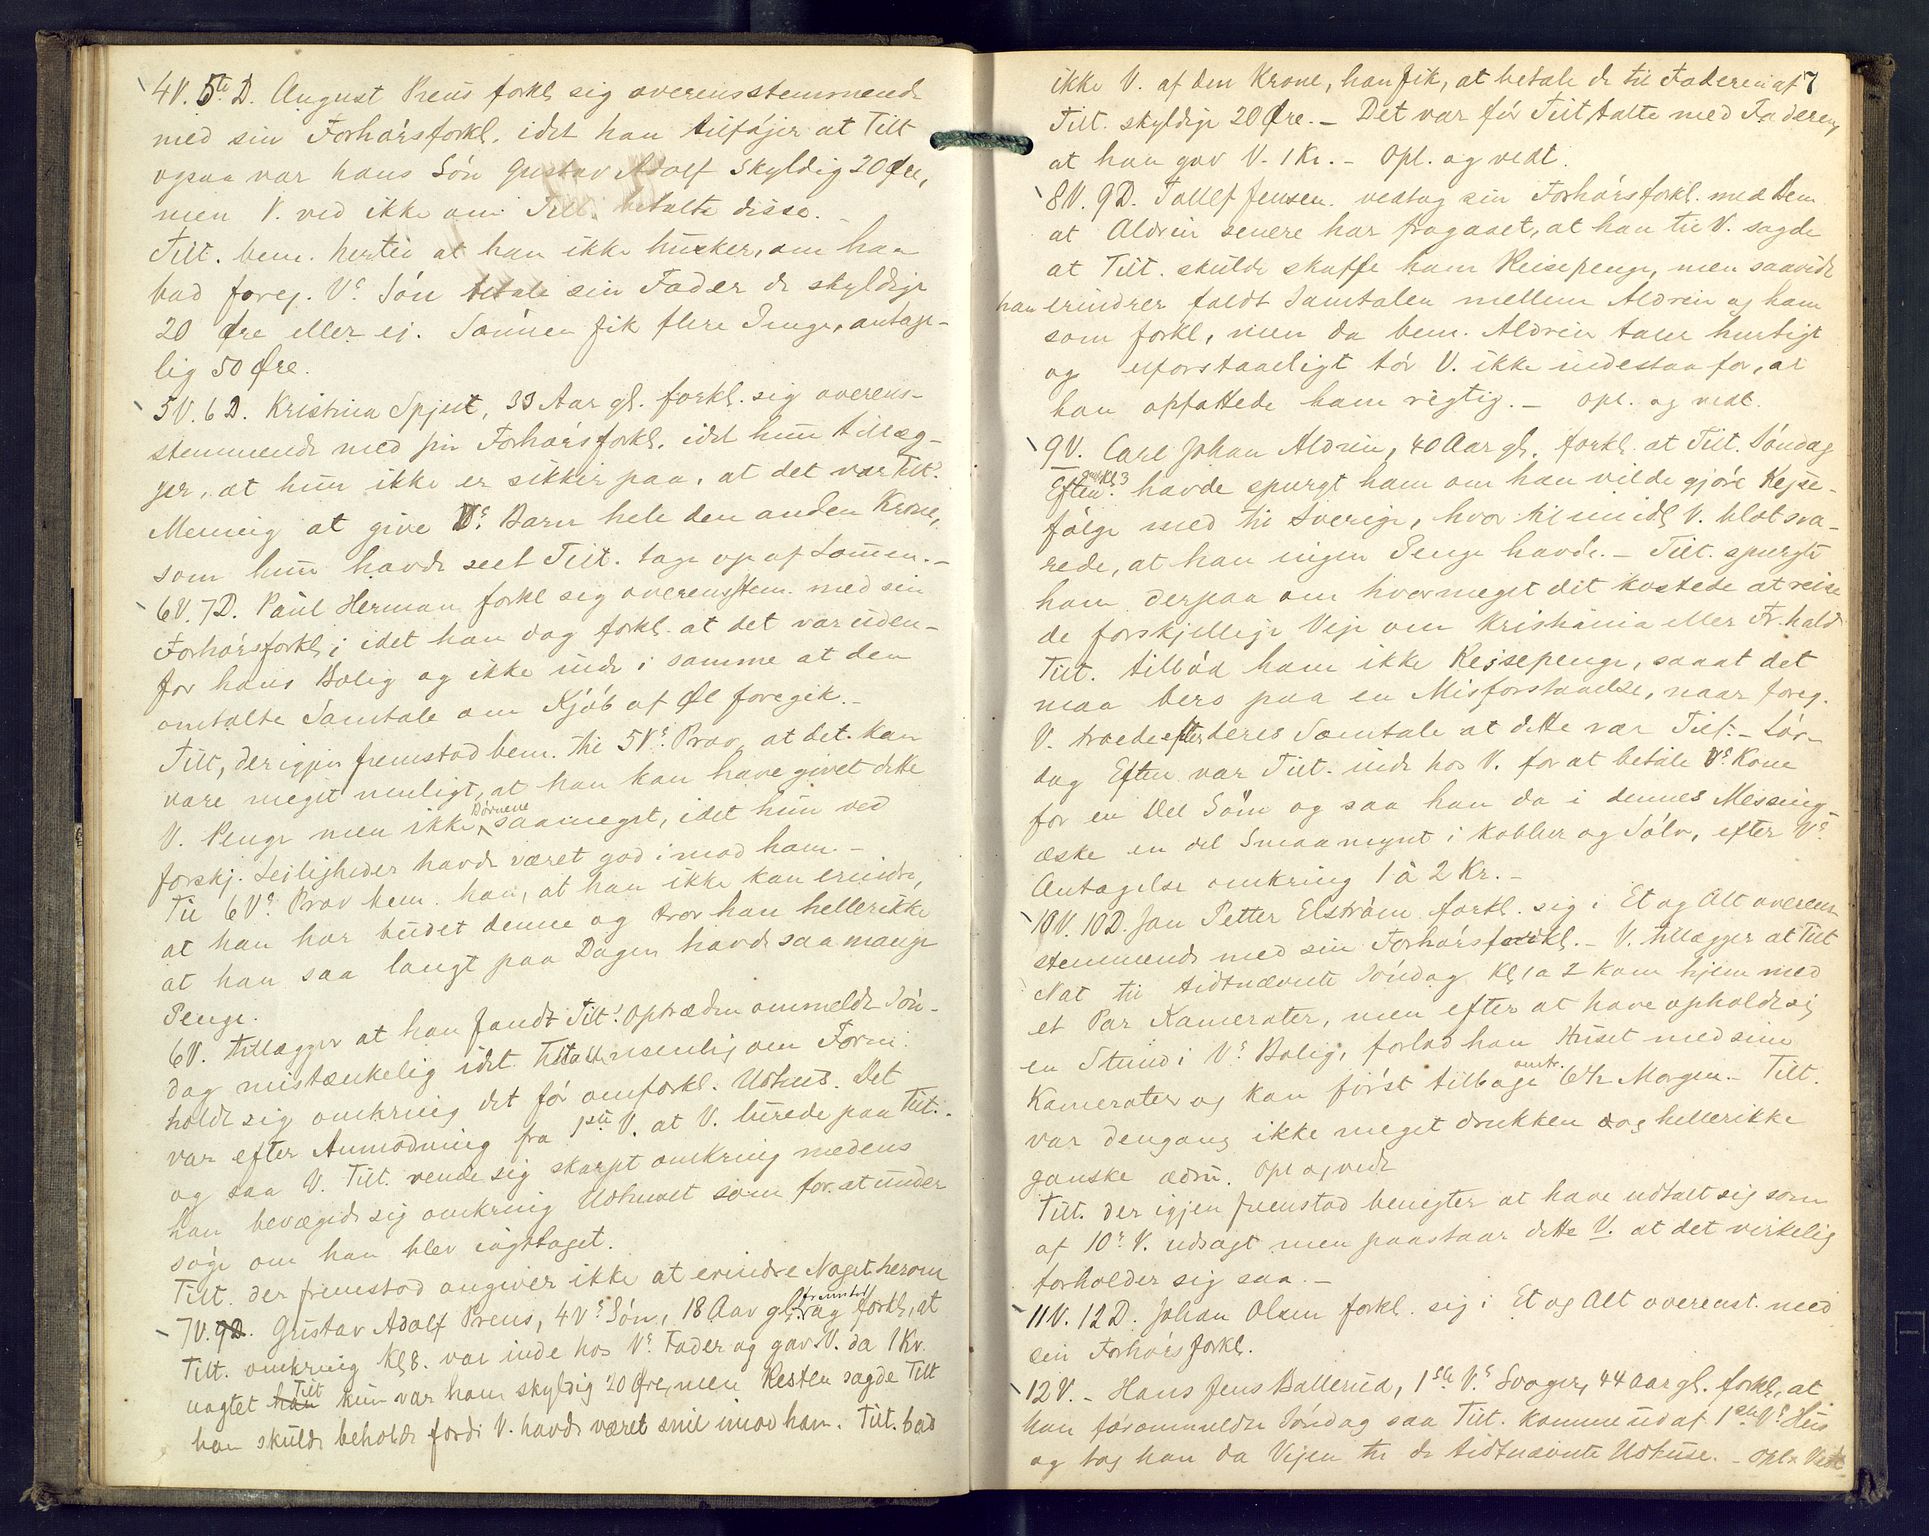 4V. 5te D. August Preus forkl. sig overensstemmende
med sin Forhørsforkl. idet han tilføjer at Tilt
ogsaa var hans Søn Gustav Adolf skyldig 20 Øre,
men V. ved ikke om Tilt. betalte disse. –
Tilt. bem. hertil at han ikke husker, om han
bad foreg. Vs Søn betale sin Fader de skyldige
20 Øre eller ej. Sønnen fik flere Penge, antage-
lig 50 Øre.
5V. 6D. Kristina Spjut, 33 Aar gl. forkl. sig overens-
stemmende med sin Forhørsforkl. idet hun tillæg-
ger, at hun ikke er sikker paa, at det var Tilts
Mening at give Vs Barn hele den anden Krone,
som hun havde seet Tilt. tage op af Lommen. –
6V. 7D. Paul Herman forkl sig overensstem. med sin
Forhørsforkl; idet han dog forkl. at det var uden-
for hans Bolig og ikke inde i samme at den
omtalte Samtale om Kjøb af Øl foregik. –
Tilt, der igjen fremstod bem. til 5Vs Prov, at det kan
være meget muligt, at han kan have givet dette
V. Penge men ikke Børnene saameget, idet hun ved
forskj. Leiligheder havde været god imod ham. –
Til 6Vs Prov bem. han, at han ikke kan erindre,
at han har budet denne og tror han heller ikke
at han saa langt paa Dagen havde saa mange
Penge.
6V. tillægger at han fandt Tilts Optræden ommeldte Søn-
dag mistænkelig idet Tilt nemlig om Form:
holdt sig omkring det før omforkl. Udhus. Det
var efter Anmodning fra 1ste V. at V. lurede paa Tilt. –
og saa V. Tilt. vende sig skarpt omkring medens
han bevægede sig omkring Udhuset som for at under
søge om han blev iagttaget.
Tilt. der fremstod angiver ikke at erindre Noget herom
7V. 9D. Gustav Adolf Preus, 4Vs Søn, 18 Aar gl. fremstod og forkl, at
Tilt. omkring Kl 8. var inde hos Vs Fader og gav V. da 1 Kr.
uagtet han Tilt kun var ham skyldig 20 Øre, men Resten sagde Tilt
han skulde beholde fordi V. havde været snil imod ham. Tilt. bad
7
ikke V. af den Krone, han fik, at betale de til Faderen af
Tilt. skyldige 20 Øre. – Det var før Tilt talte med Faderen,
at han gav V. 1 Kr. – Opl. og vedt.
8V. 9D. Tollef Jensen vedtog sin Forhørsforkl. med Bem.
at Aldrin senere har fragaaet, at han til V. sagde
at Tilt. skulde skaffe ham Reisepenge, men saavidt
han erindrer faldt Samtalen mellem Aldrin og ham
som forkl, men da bem. Aldrin taler hurtigt
og uforstaaeligt tør V. ikke indestaa for, at
han opfattede ham rigtig. – Opl. og vedt.
9V. Carl Johan Aldrin, 40 Aar gl. forkl. at Tilt. Søndag
Efterm. Kl 3 havde spurgt ham om han vilde gjøre Rejse-
følge med til Sverige, hvortil imidl V. blot sva-
rede, at han ingen Penge havde. – Tilt. spurgte
ham derpaa om hvormeget det kostede at reise
de forskjellige Veje om Kristiania eller Fr.hald
Tilt. tilbød ham ikke Rejsepenge, saaat det
maa bero paa en Misforstaaelse, naar foreg.
V. troede efter deres Samtale at dette var Tilf. – Lør-
dag Efterm var Tilt. inde hos V. for at betale Vs Kone
for en Del Søm og saa han da i dennes Messing-
æske en del Smaamynt i Kobber og Sølv, efter Vs
Antagelse omkring 1 à 2 Kr. –
10V. 10D. Jan Petter Elstrøm forkl. sig i Et og Alt overens-
stemmende med sin Forhørsforkl. – V. tillægger at Tilt
Nat til tidtnævnte Søndag Kl 1 a 2 kom hjem med
et Par Kamerater, men efter at have opholdt sig
en Stund i Vs Bolig, forlod han Huset med sine
Kamerater og kom først tilbage omtr. 6 ½ Morgen. – Tilt.
var dengang ikke meget drukken og heller ikke
ganske ædru. Opl og vedt
Tilt. der igjen fremstod benegter at have udtalt sig som
af 10de V. udsagt men paastaar dette V. at det virkelig
forholder sig saa. –
11V. 12D. Johan Olsen forkl. sig i Et og Alt overenst. med
sin Forhørsforkl.
12V. – Hans Jens Ballerud, 1ste Vs Svoger, 44 Aar gl. forkl, at
han førommeldte Søndag saa Tilt. komme ud af 1ste Vs Hus
og tog han da Vejen til de tidtnævnte Udhuse. – Opl & Vedt